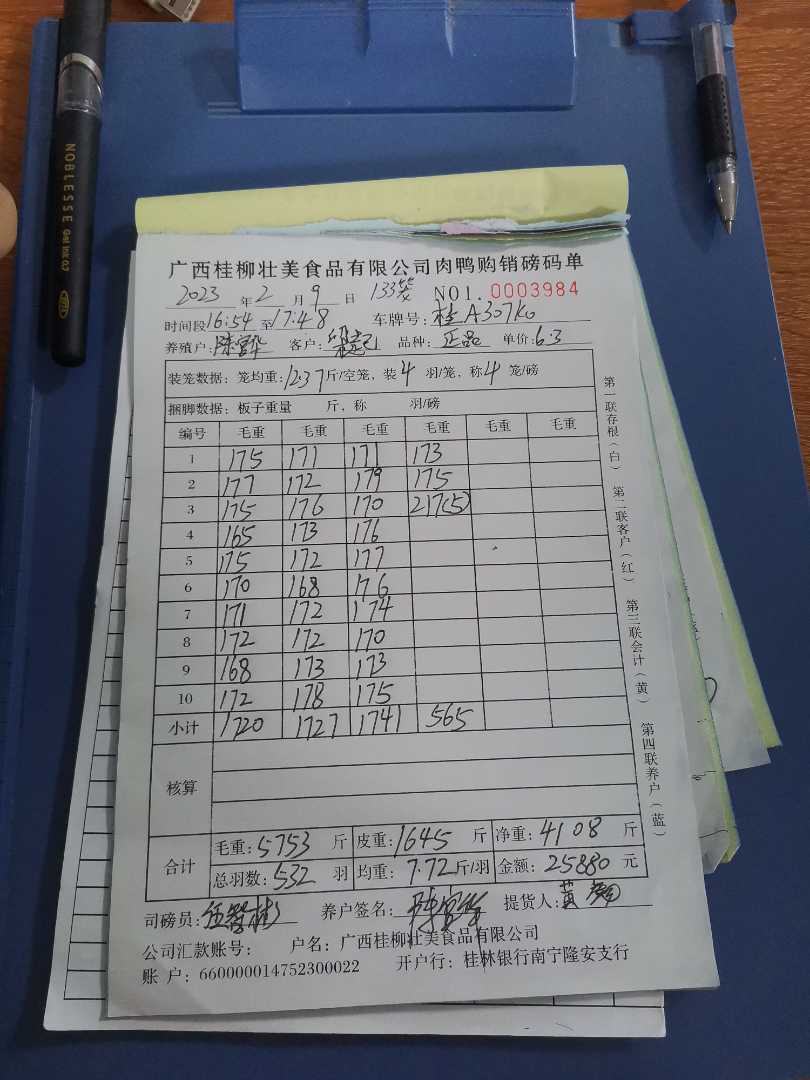 NOBLESSE Gel ink 0.7
广西桂柳壮美食品有限公司肉鸭购销磅码单
2023 年 2 月 9 日 133 NO1. 0003984
时间段 16:54 至 17:48 车牌号: 桂A307K0
养殖户: 陈宫华 客户: 品种: 正品 单价: 6.3
装笼数据: 笼均重: 12.37 斤/空笼, 装 4 羽/笼, 称 4 笼/磅
捆脚数据: 板子重量 斤, 称 羽/磅
编号 毛重 毛重 毛重 毛重 毛重 毛重
1 175 171 171 173
2 177 172 179 175
3 175 176 170 217(5)
4 165 173 176
5 175 172 177
6 170 168 176
7 171 172 174
8 172 172 170
9 168 173 173
10 172 178 175
小计 1720 1727 1741 565
核算
合计 毛重: 5753 斤 皮重: 1645 斤 净重: 4108 斤
总羽数: 532 羽 均重: 7.72 斤/羽 金额: 25880 元
司磅员: 养户签名: 陈宫华 提货人: 黄
公司汇款账号: 户名: 广西桂柳壮美食品有限公司
账 户: 660000014752300022 开户行: 桂林银行南宁隆安支行
第一联存根(白) 第二联客户(红) 第三联会计(黄) 第四联养户(蓝)